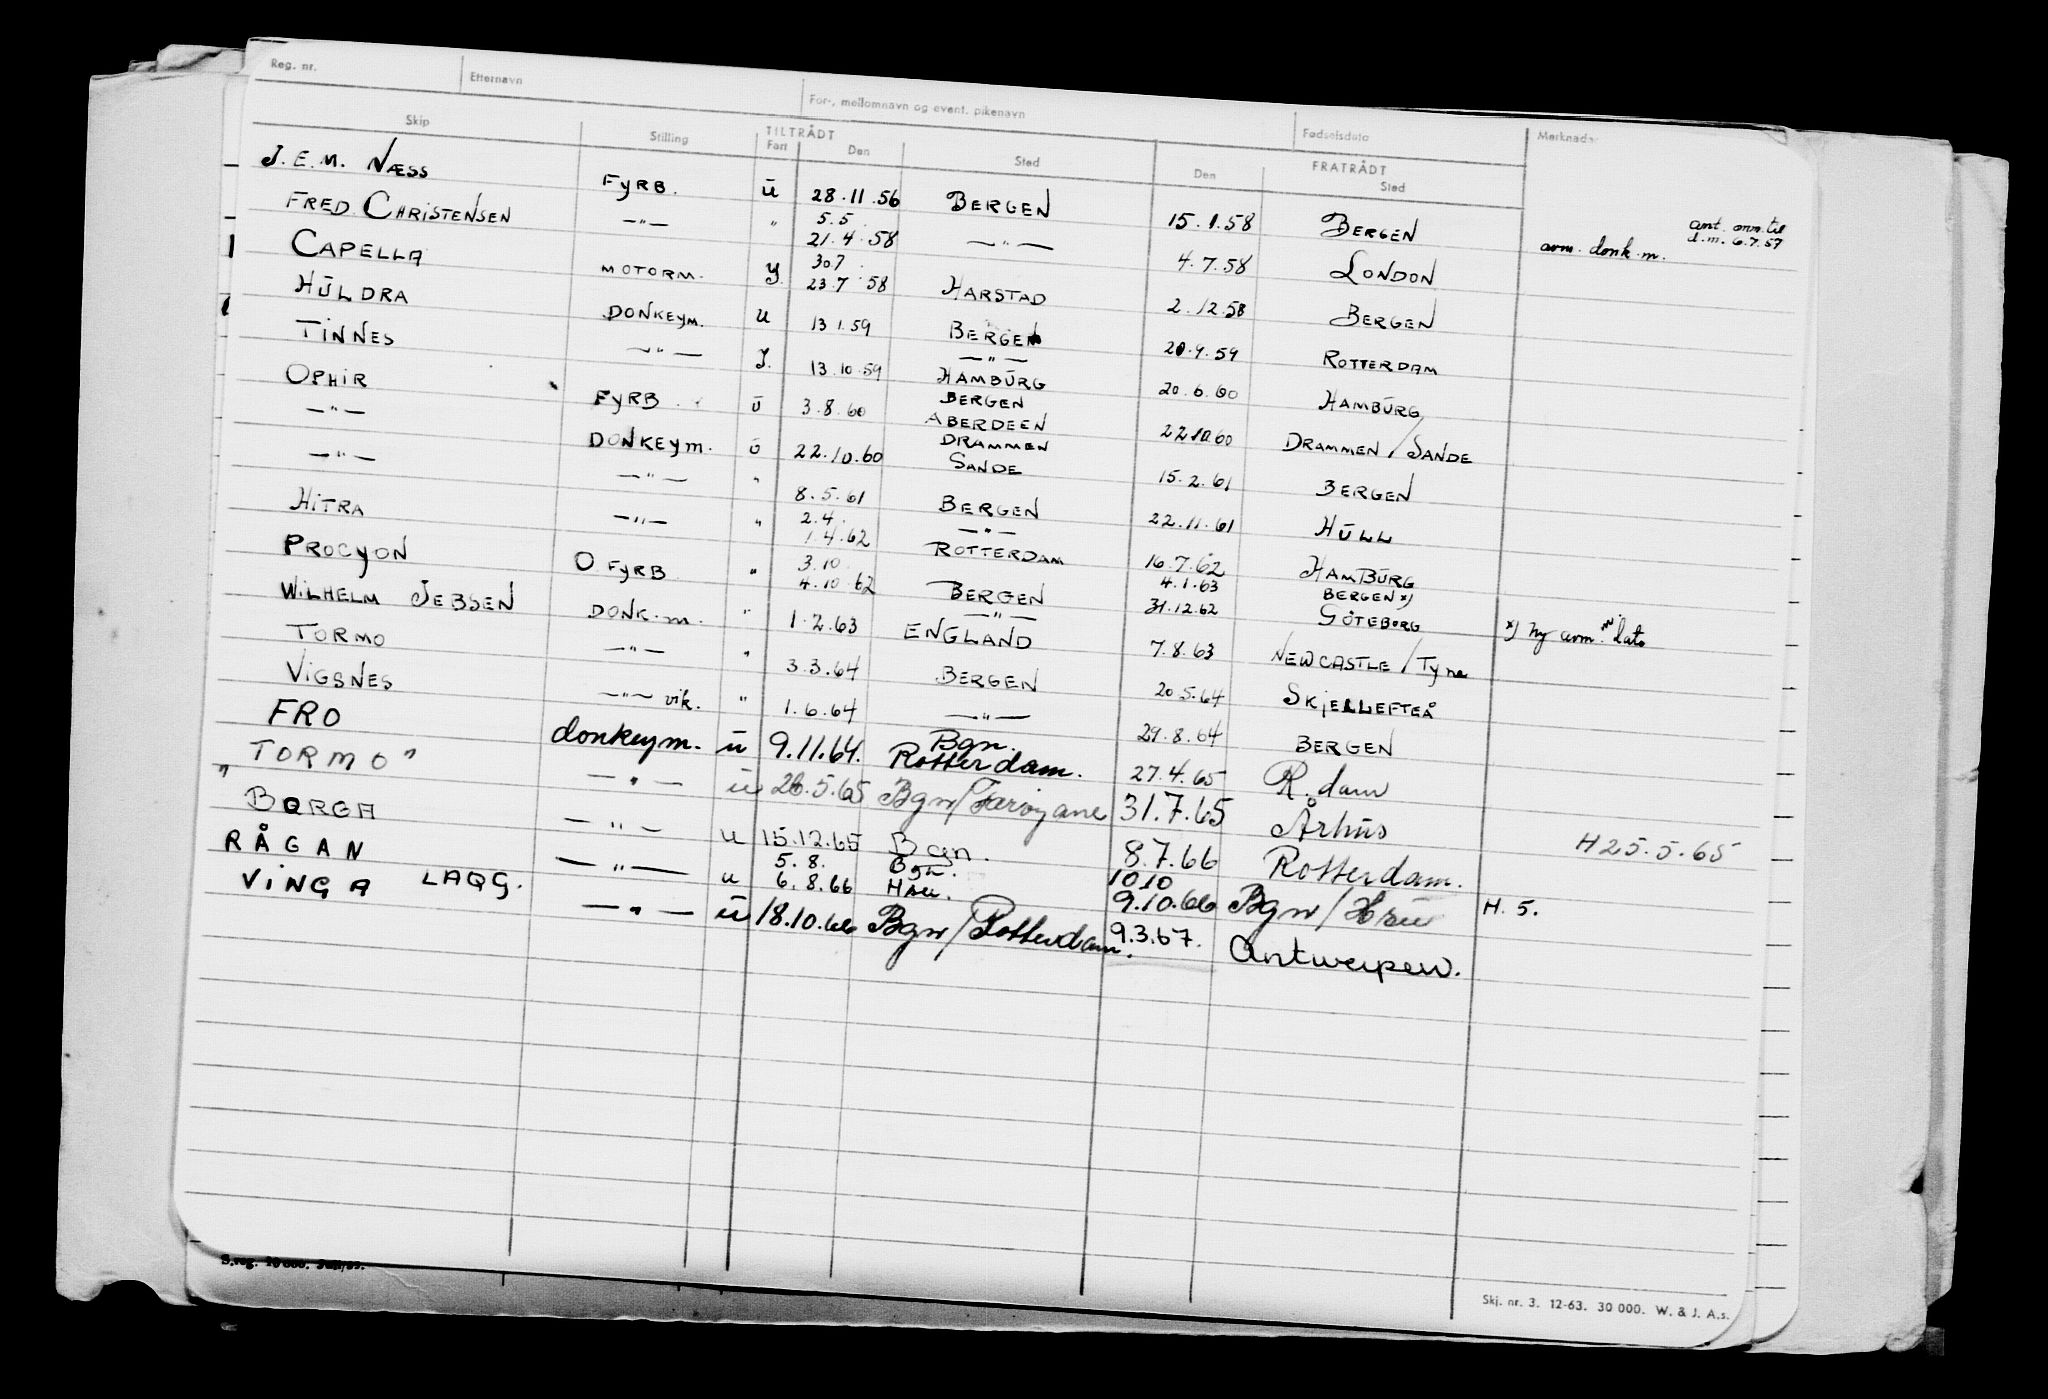 Reg. nr. Etternavn For-, mellomnavn og event. pikenavn Fødselsdato Merknader
Skip Stilling TILTRÅDT FRATRÅDT
Fart Den Sted Den Sted
J. E. M. NÆSS FYRB. ū 28.11.56 BERGEN 15.1.58 BERGEN avm. donk.m. ant. anm. til d.m. 6.7.57
FRED CHRISTENSEN —"— " 5.5. 21.4.58 —"— 4.7.58 LONDON
CAPELLA MOTORM. Y. 30.7. 23.7.58 HARSTAD 2.12.58 BERGEN
HŪLDRA DONKEYM. U 13.1.59 BERGEN 20.9.59 ROTTERDAM
TINNES —"— Y. 13.10.59 —"— HAMBŪRG 20.6.60 HAMBŪRG
OPHIR FYRB. ū 3.8.60 BERGEN ABERDEEN 22.10.60 DRAMMEN/SANDE
—"— DONKEYM. ū 22.10.60 DRAMMEN SANDE 15.2.61 BERGEN
—"— —"— " 8.5.61 BERGEN 22.11.61 HŪLL
HITRA —"— " 2.4. 1.4.62 —"— ROTTERDAM 16.7.62 HAMBŪRG
PROCYON O FYRB " 3.10. 4.10.62 BERGEN 4.1.63 31.12.62 BERGEN x) GÖTEBORG x) Ny avm. m/ dato
WILHELM JEBSEN DONK.M. " 1.2.63 —"— ENGLAND 7.8.63 NEWCASTLE/Tyne
TORMO —"— " 3.3.64 BERGEN 20.5.64 SKJELLEFTEÅ
VIGSNES —"— vik. " 1.6.64 —"— 29.8.64 BERGEN
FRO donkeym. ū 9.11.64. Bgn. Rotterdam. 27.4.65 R.dam
"TORMO" —"— ū 20.5.65 Bgn/Færøyane 31.7.65 Århus H 25.5.65
BORGA —"— u 15.12.65 Bgn. 8.7.66 Rotterdam.
RÅGAN —"— u 5.8. 6.8.66 Bgn. 10.10 9.10.66 Bgn/ H. 5.
VINGA LAQG. —"— ū 18.10.66 Bgn/Rotterdam. 9.3.67. Antwerpen.
S.reg. 10 000.
Skj. nr. 3. 12-63. 30 000. W. & J. A.s.